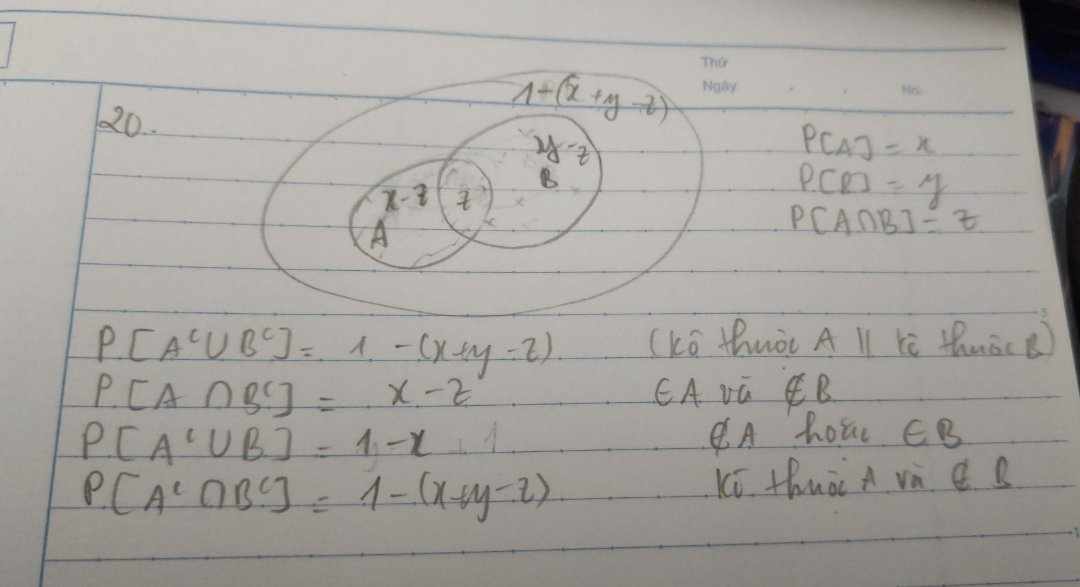 Thứ
Ngày
No.
20.
1-(x+y-z)
x-z
z
y-z
A
B
P[A] = x
P[B] = y
P[A∩B] = z
P[Aᶜ∪Bᶜ] = 1-(x+y-z) (kô thuộc A || kô thuộc B)
P[A∩Bᶜ] = x-z ∈A và ∉B
P[Aᶜ∪B] = 1-x ∉A hoặc ∈B
P[Aᶜ∩Bᶜ] = 1-(x+y-z) kô thuộc A và ∉ B